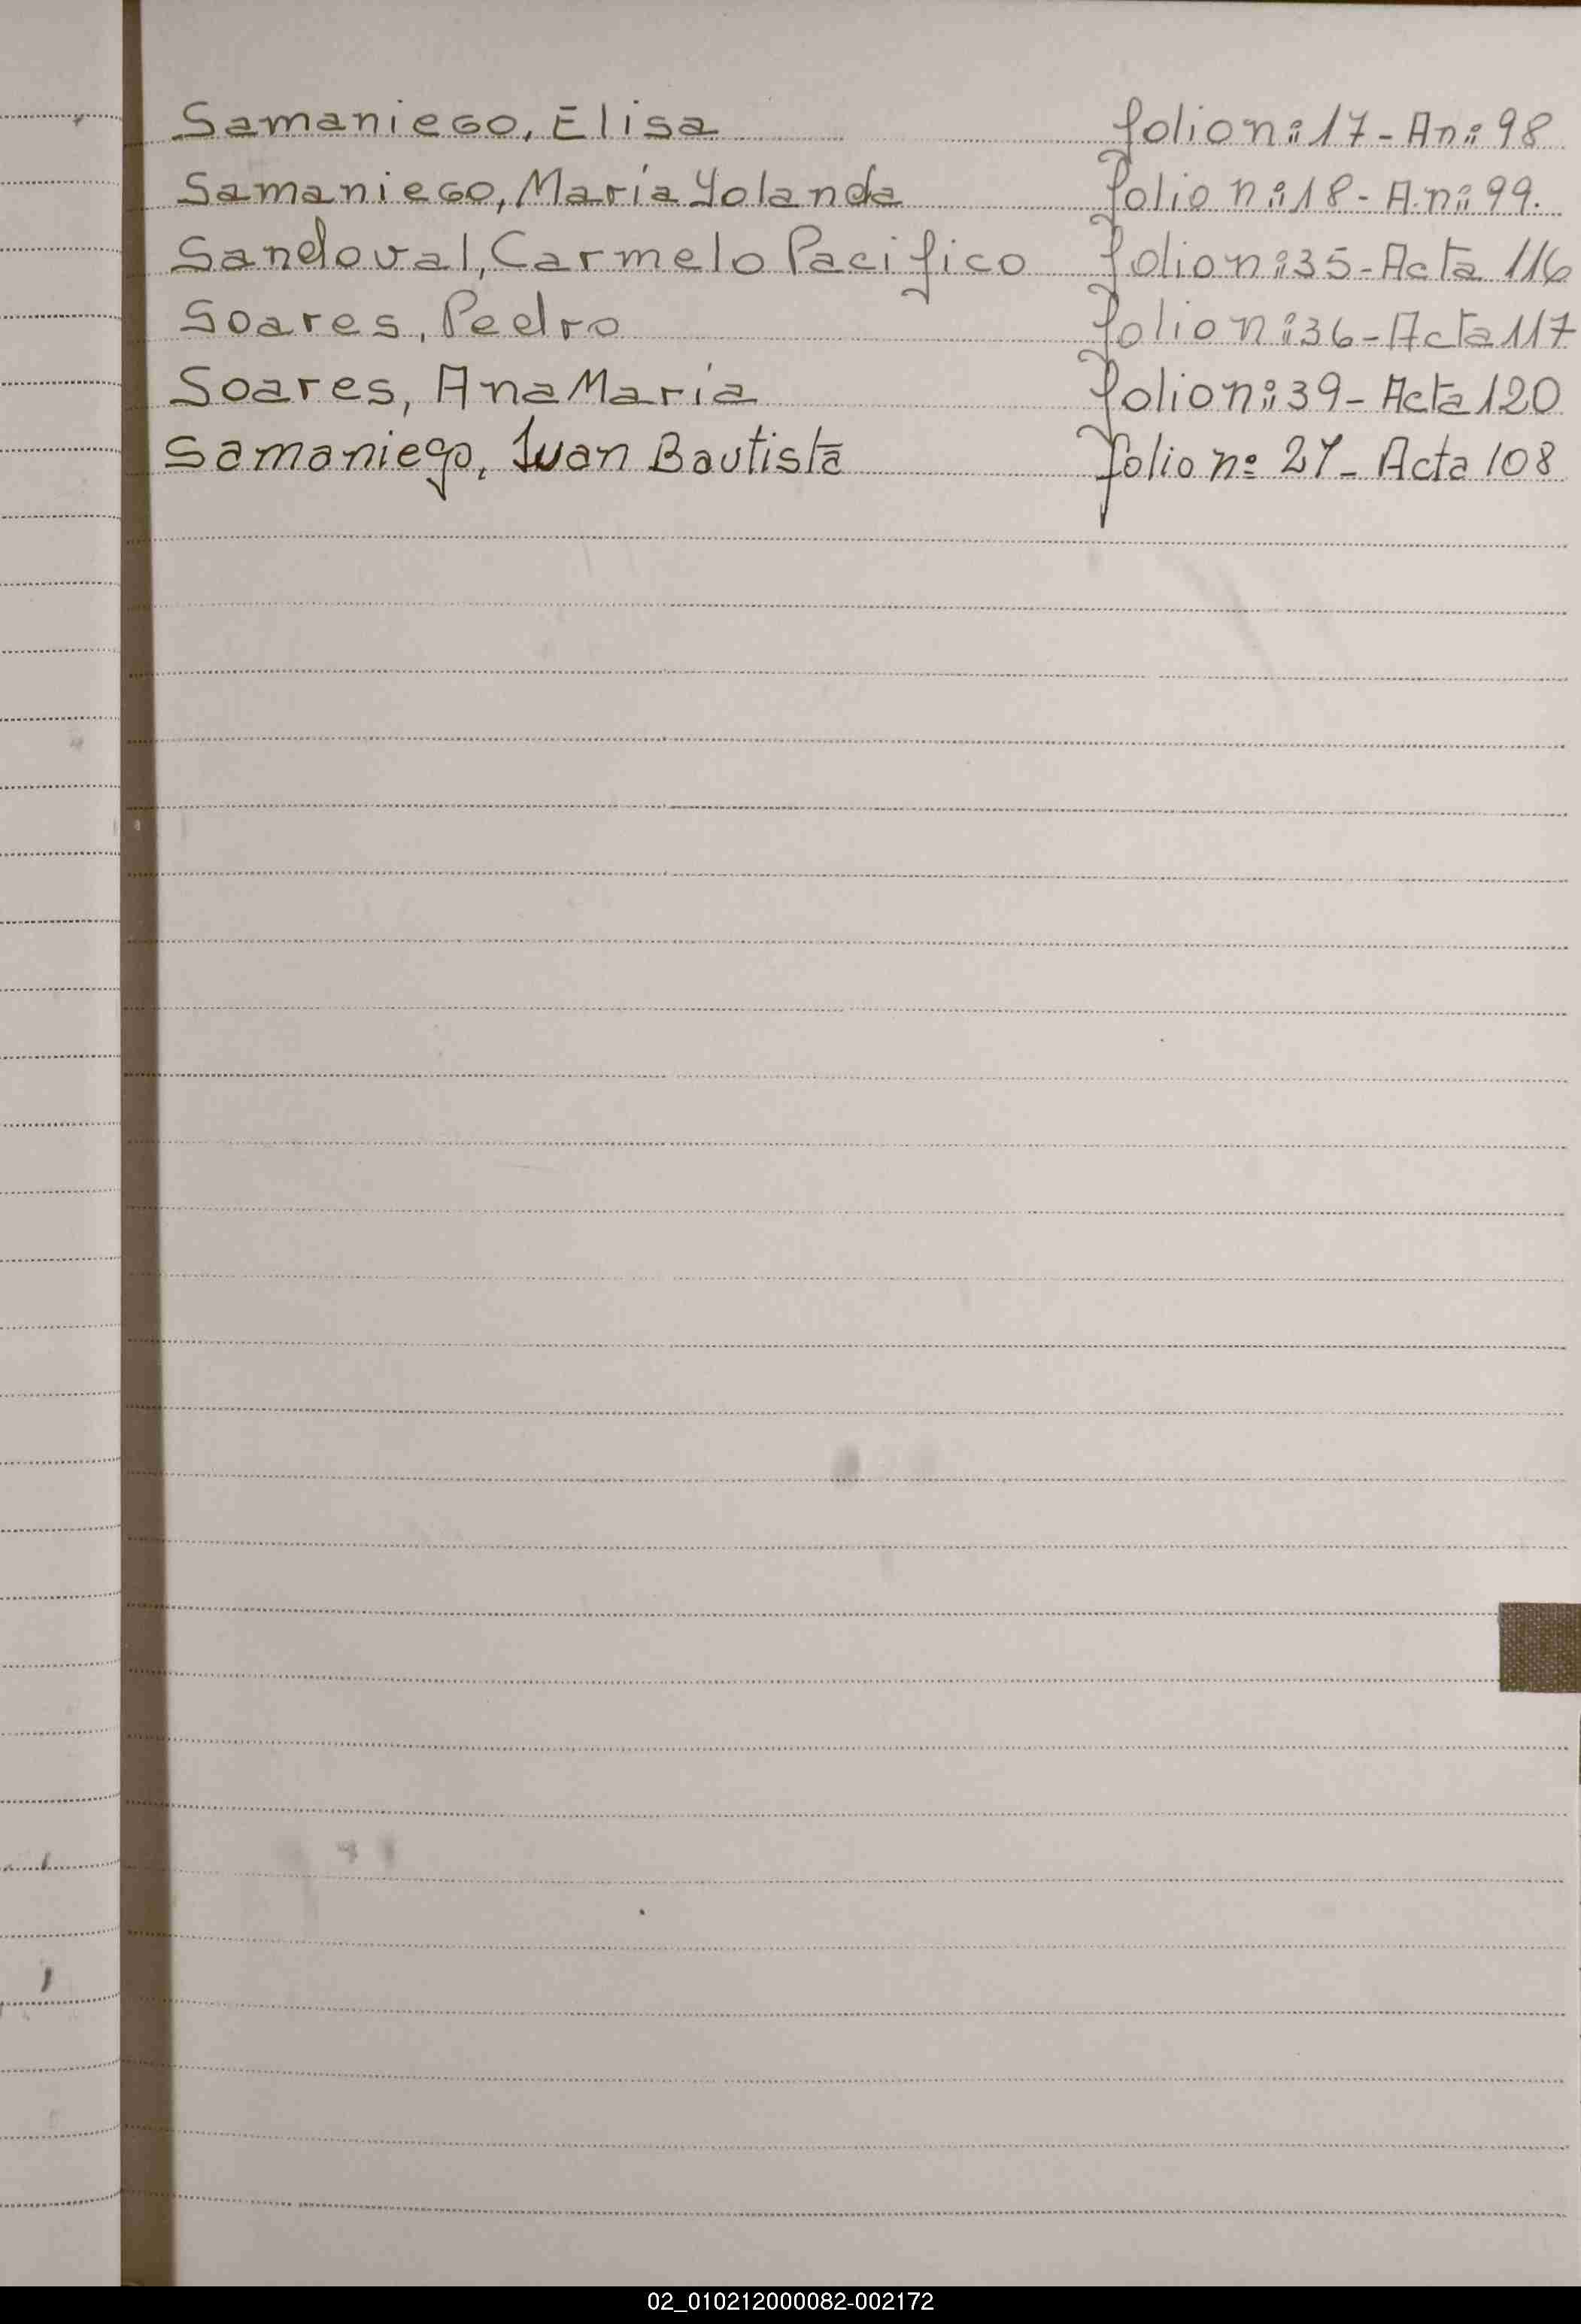 Samaniego, Elisa folio nº 17 - A nº 98
Samaniego, María Yolanda folio nº 18 - A. nº 99.
Sandoval, Carmelo Pacifico folio nº 35 - Acta 116
Soares, Pedro folio nº 36 - Acta 117
Soares, Ana María folio nº 39 - Acta 120
Samaniego, Juan Bautista folio nº 27 - Acta 108
02_010212000082-002172